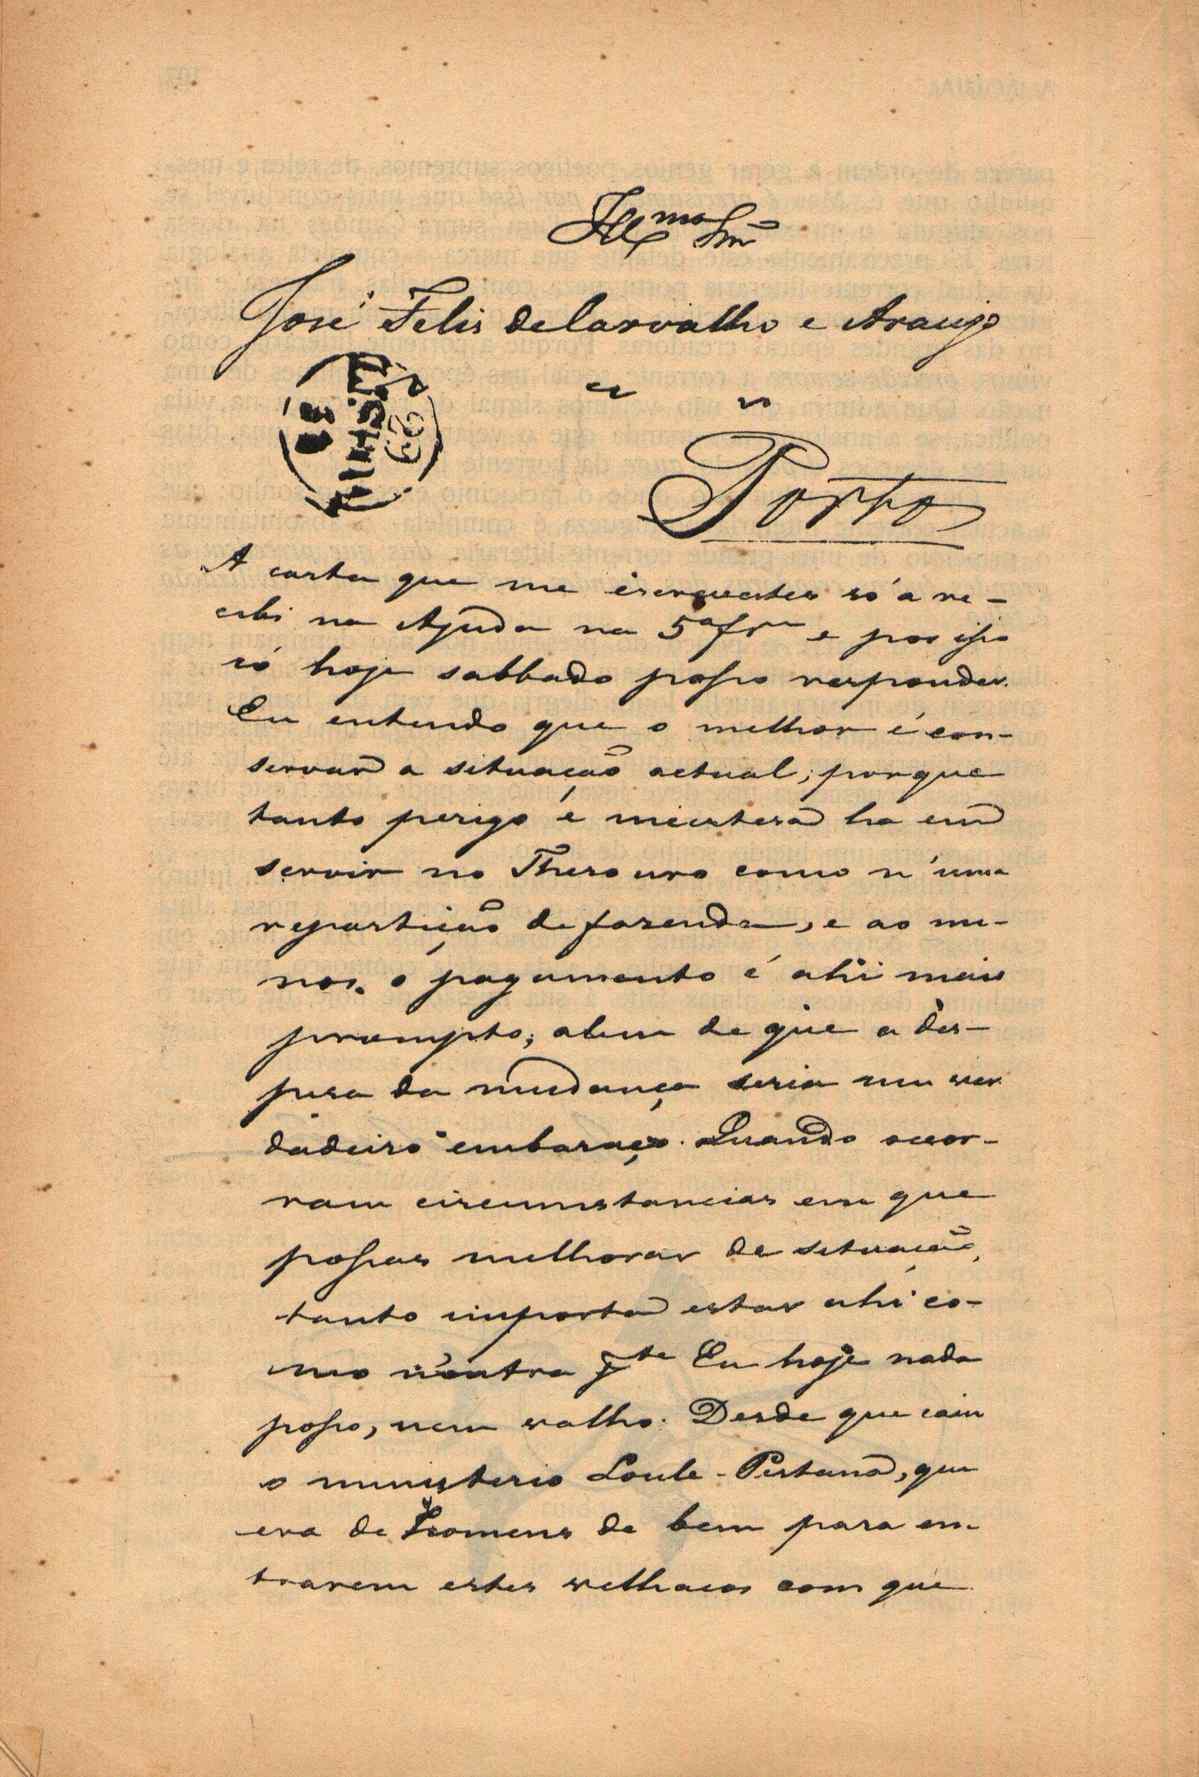 Illmo Snr
José Felis de Carvalho e Araujo
Porto
A carta que me escreveste só a re-
cebi na Ajuda na 5ª frª e por isso
só hoje sabbado posso responder.
Eu entendo que o melhor é con-
servar a situação actual; porque
tanto perigo e incerteza ha em
servir no Thesouro como n'uma
repartição de fazenda, e ao me-
nos o pagamento é ahi mais
prompto; alem de que a des-
pesa da mudança seria um ver
dadeiro embaraço. Quando ocor-
ram circumstancias em que
possas melhorar de situação,
tanto importa estar ahi co-
mo n'outra pte Eu hoje nada
posso, nem valho. Desde que caiu
o ministerio Loule-Pestana, que
era de homens de bem para en-
trarem estes velhacos com que